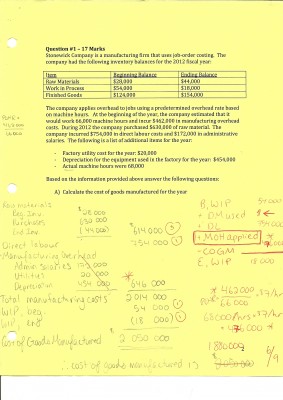 Question #1 – 17 Marks
Stonewick Company is a manufacturing firm that uses job-order costing. The
company had the following inventory balances for the 2012 fiscal year:
Item Beginning Balance Ending Balance
Raw Materials $28,000 $44,000
Work in Process $54,000 $18,000
Finished Goods $124,000 $154,000
The company applies overhead to jobs using a predetermined overhead rate based
on machine hours. At the beginning of the year, the company estimated that it
would work 66,000 machine hours and incur $462,000 in manufacturing overhead
costs. During 2012 the company purchased $630,000 of raw material. The
incurred $754,000 in direct labour costs and $172,000 in administrative
salaries. The following is a list of additional items for the year:
- Factory utility cost for the year: $20,000
- Depreciation for the equipment used in the factory for the year: $454,000
- Actual machine hours were 68,000
Based on the information provided above answer the following questions:
A) Calculate the cost of goods manufactured for the year
Raw materials
Beg. Inv. $28 000
Purchases 630 000
End Inv. (44 000) $614 000
Direct labour 754 000
Manufacturing overhead
Admin salaries
Utilities 20 000
Depreciation 454 000 646 000
Total manufacturing costs 2 014 000
WIP, beg. 54 000
WIP, end (18 000)
Cost of Goods Manufactured 2 050 000
∴ cost of goods manufactured is
B, WIP
+ DM used
+ DL
+ MOH applied
- COGM
E, WIP 18 000
462 000
66 000
6/9